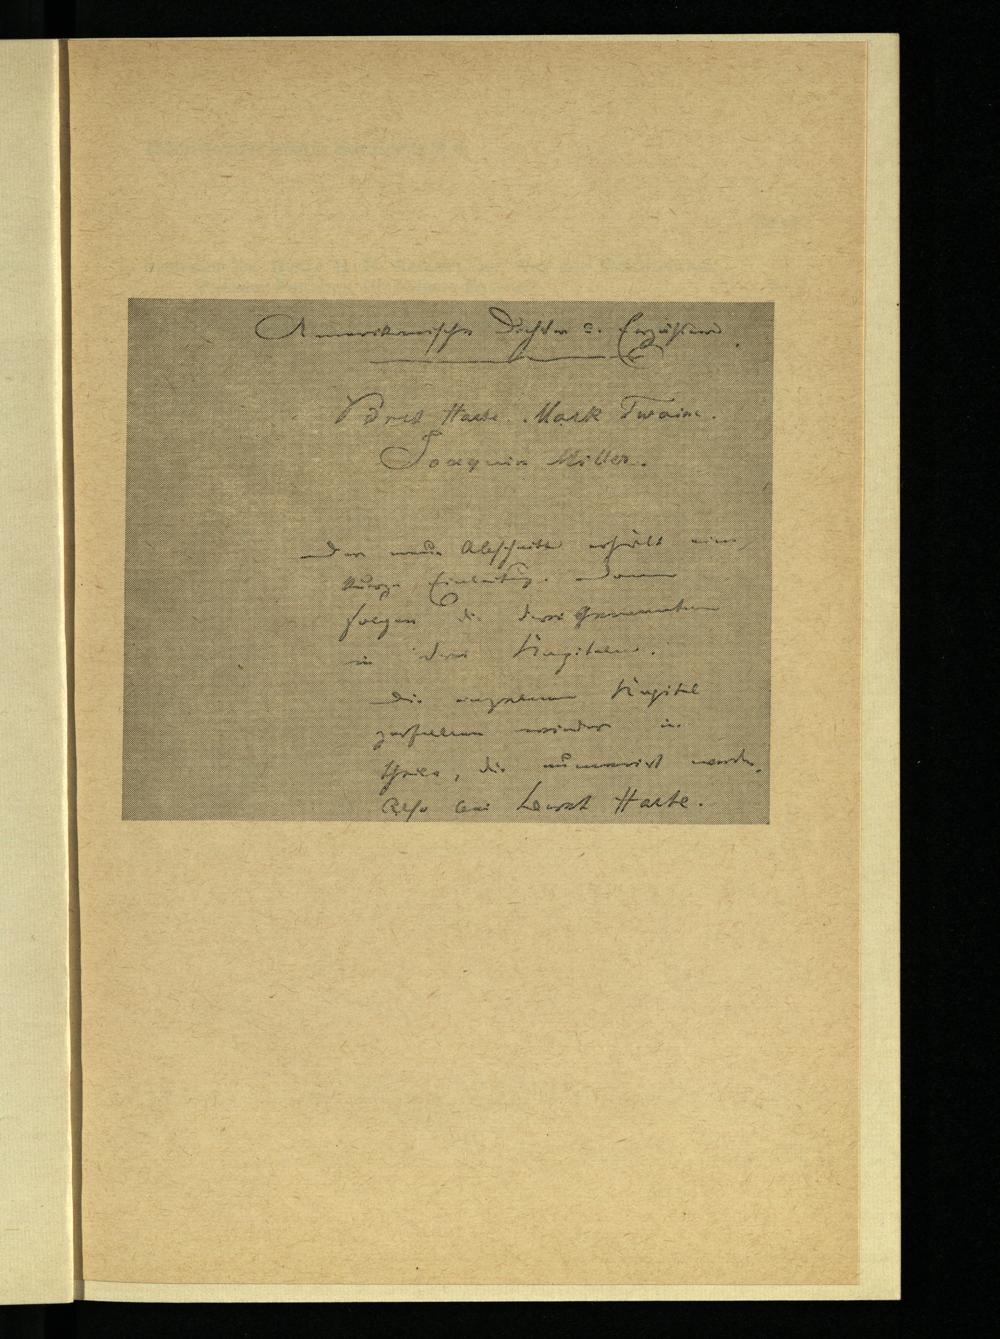 Amerikanische Dichter u. Erzähler.
Bret Harte. Mark Twain.
Joaquin Miller.
Der neue Abschnitt erhält eine
kurze Einleitung. Dann
folgen die drei Genannten
in drei Kapiteln.
Die einzelnen Kapitel
zerfallen wieder in
Theile, die numerirt werden.
Also bei Bret Harte.